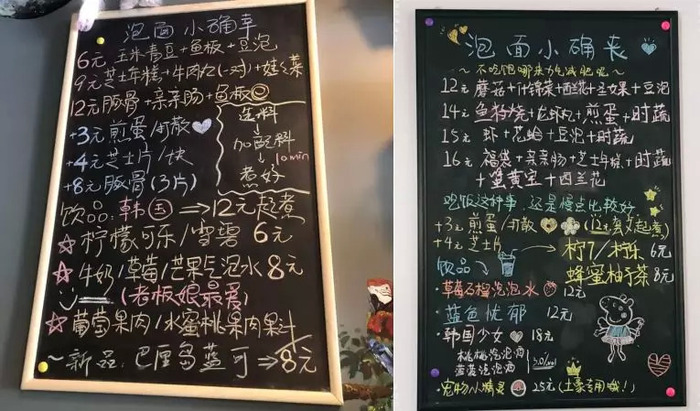 泡面小确幸
6元 玉米青豆+鱼板+豆泡
9元 芝士年糕+牛肉丸(一对)+娃娃菜
12元 豚骨+亲亲肠+鱼板
+3元 煎蛋/打散
+4元 芝士片/块
+8元 豚骨(3片)
选料
↓
加配料
↓ 10min
煮好
饮品:韩国⇒12元起煮
☆柠檬可乐/雪碧 6元
☆牛奶/草莓/芒果气泡水 8元
(老板娘最爱)
☆葡萄果肉/水蜜桃果肉果汁
~新品:巴厘岛蓝可⇒8元
泡面小确丧
~不吃饱哪来力气减肥呢~
12元 蘑菇+什锦菜+西兰花+圣女果+豆泡
14元 鱼籽烧+龙虾丸+煎蛋+时蔬
15元 虾+花蛤+豆泡+时蔬
16元 福袋+亲亲肠+芝士年糕+时蔬
+蟹黄宝+西兰花
吃饭这种事 还是慢点比较好
+3元 煎蛋/打散 (12元离火起煮)
+4元 芝士片 → 柠7/柠乐 6元
饮品 蜂蜜柚子茶 8元
·草莓石榴泡泡水 12元
·蓝色忧郁 12元
韩国少女 18元
桃桃泡泡酒
蓝莓泡泡酒 3.0%vol
·宠物小精灵 25元(土豪专用哦!)